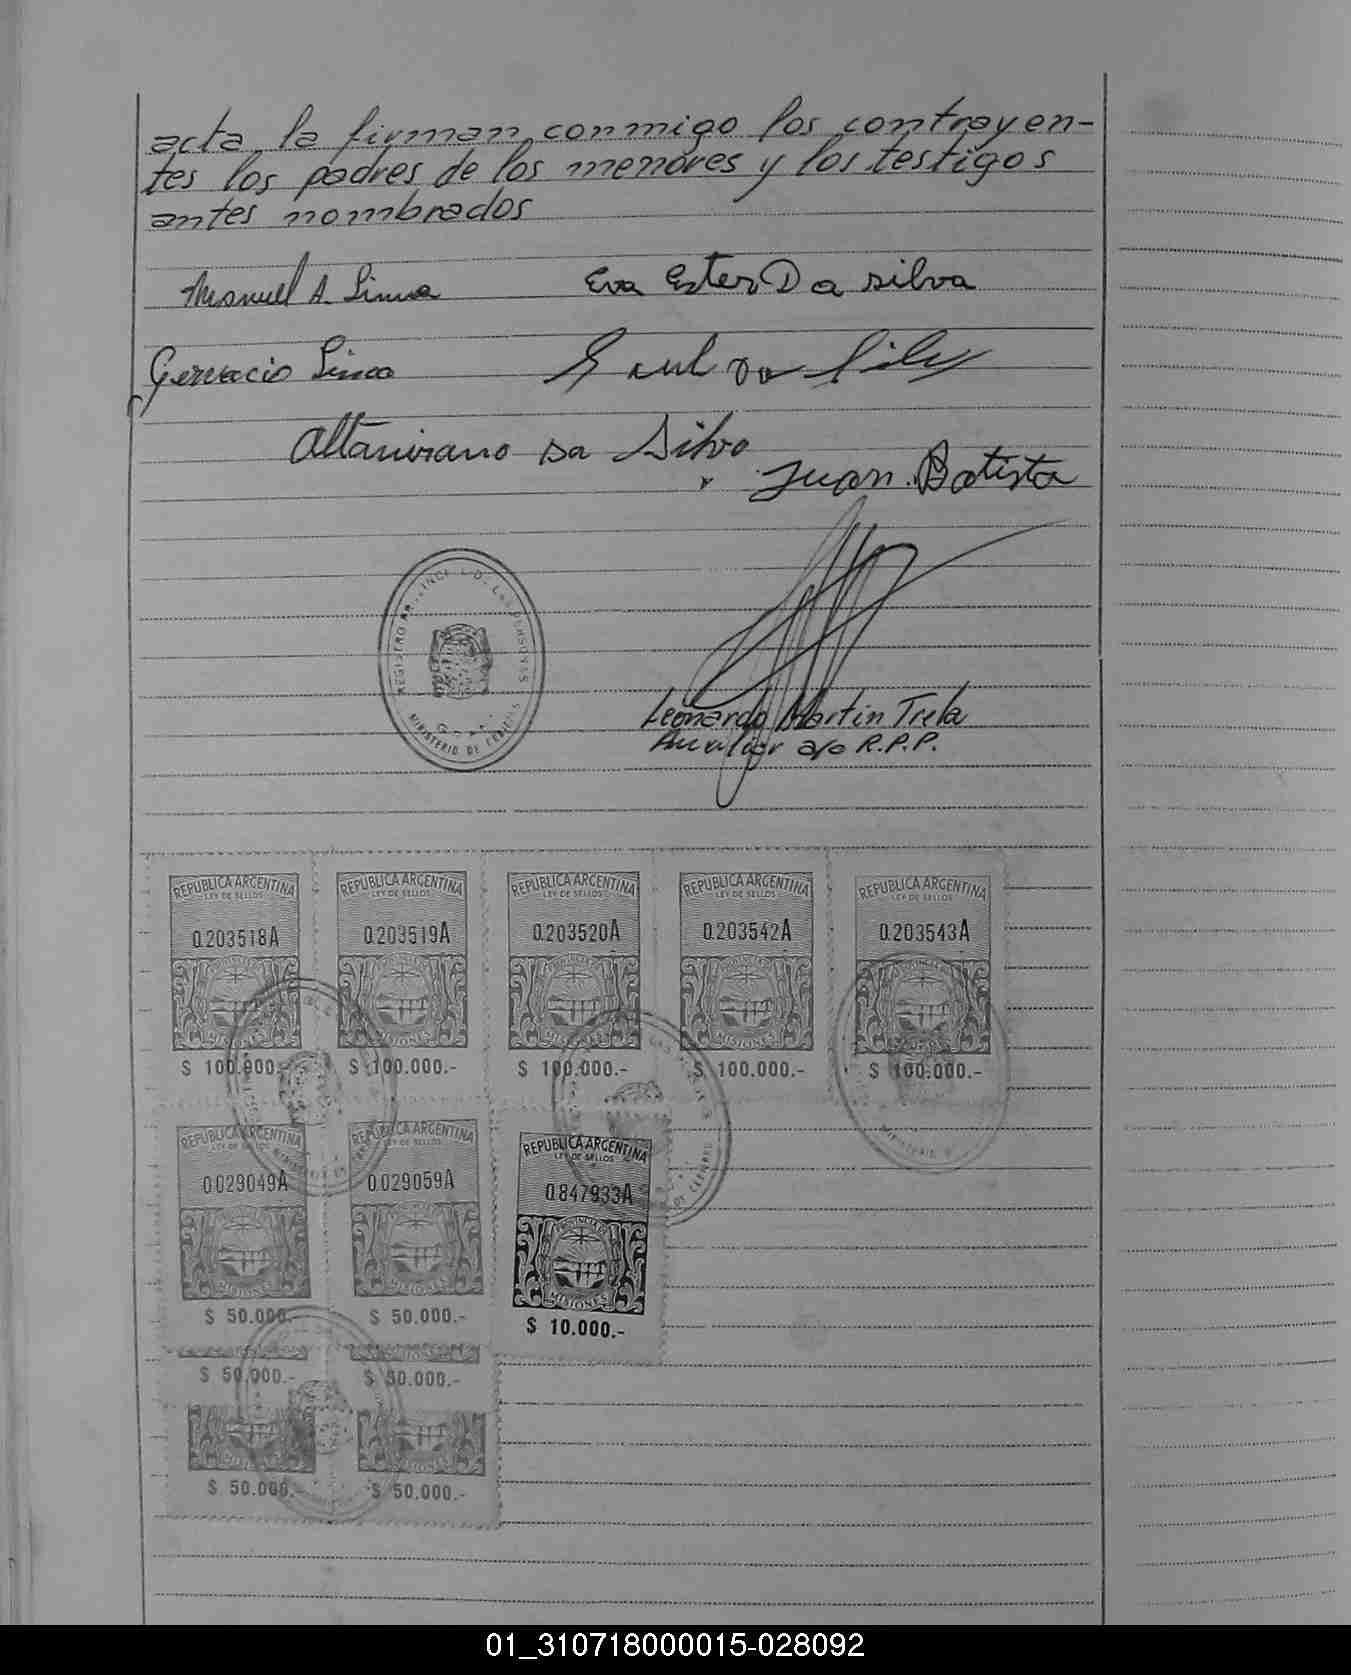 acta, la firman conmigo los contrayen-
tes los padres de los menores y los testigos
antes nombrados
Manuel A. Lima Eva Ester Da silva
Gervacio Lima Saul Da Silv
Altamirano Da Silva
Juan Batista
REGISTRO PROVINCIAL DE LAS PERSONAS
MINISTERIO DE GOBIERNO
Leonardo Martin Trela
Auxiliar a/c R.P.P.
REPUBLICA ARGENTINA REPUBLICA ARGENTINA REPUBLICA ARGENTINA REPUBLICA ARGENTINA REPUBLICA ARGENTINA
LEY DE SELLOS LEY DE SELLOS LEY DE SELLOS LEY DE SELLOS LEY DE SELLOS
0.203518A 0.203519A 0.203520A 0.203542A 0.203543A
PROVINCIA DE PROVINCIA DE PROVINCIA DE PROVINCIA DE PROVINCIA DE
MISIONES MISIONES MISIONES MISIONES MISIONES
$ 100.000.- $ 100.000.- $ 100.000.- $ 100.000.- $ 100.000.-
REPUBLICA ARGENTINA REPUBLICA ARGENTINA REPUBLICA ARGENTINA
LEY DE SELLOS LEY DE SELLOS LEY DE SELLOS
0.029049A 0.029059A 0.847933A
PROVINCIA DE
MISIONES MISIONES MISIONES
$ 50.000.- $ 50.000.- $ 10.000.-
$ 50.000.- $ 50.000.-
$ 50.000.- $ 50.000.-
01_310718000015-028092